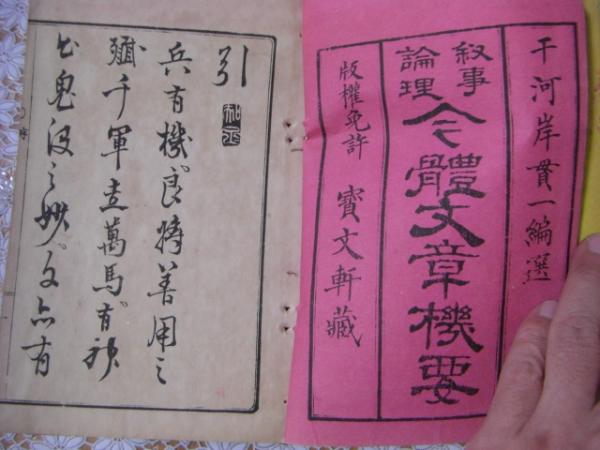 干河岸貫一編選
叙事
論理
今體文章機要
版權免許
寳文軒藏
引
兵有機。良將善用之
殲千軍走萬馬。有神
出鬼没之妙。文亦有